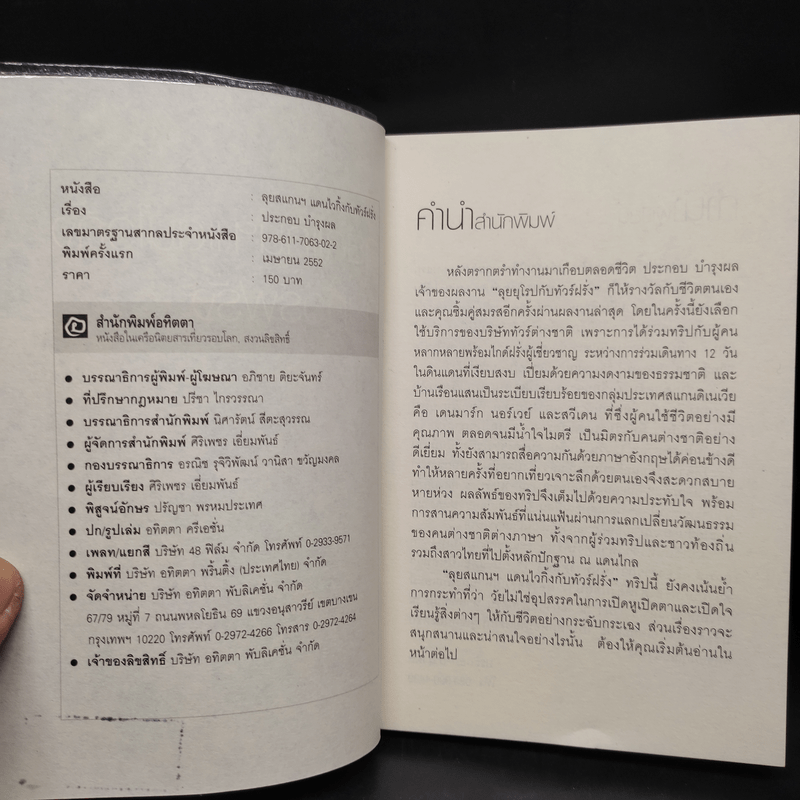 หนังสือ : ลุยสแกนฯ แดนไวกิ้งกับทัวร์ฝรั่ง
เรื่อง : ประกอบ บำรุงผล
เลขมาตรฐานสากลประจำหนังสือ : 978-611-7063-02-2
พิมพ์ครั้งแรก : เมษายน 2552
ราคา : 150 บาท
สำนักพิมพ์อทิตตา
หนังสือในเครือนิตยสารเที่ยวรอบโลก, สงวนลิขสิทธิ์
บรรณาธิการผู้พิมพ์-ผู้โฆษณา อภิชาย ติยะจันทร์
ที่ปรึกษากฎหมาย ปรีชา ไกรวรรณา
บรรณาธิการสำนักพิมพ์ นิศารัตน์ สีตะสุวรรณ
ผู้จัดการสำนักพิมพ์ ศิริเพชร เอี่ยมพันธ์
กองบรรณาธิการ อรณิช รุจิวิพัฒน์ วานิสา ขวัญมงคล
ผู้เรียบเรียง ศิริเพชร เอี่ยมพันธ์
พิสูจน์อักษร ปรัญชา พรหมประเทศ
ปก/รูปเล่ม อทิตตา ครีเอชั่น
เพลท/แยกสี บริษัท 48 ฟิล์ม จำกัด โทรศัพท์ 0-2933-9571
พิมพ์ที่ บริษัท อทิตตา พริ้นติ้ง (ประเทศไทย) จำกัด
จัดจำหน่าย บริษัท อทิตตา พับลิเคชั่น จำกัด
67/79 หมู่ที่ 7 ถนนพหลโยธิน 69 แขวงอนุสาวรีย์ เขตบางเขน
กรุงเทพฯ 10220 โทรศัพท์ 0-2972-4266 โทรสาร 0-2972-4264
เจ้าของลิขสิทธิ์ บริษัท อทิตตา พับลิเคชั่น จำกัด
คำนำสำนักพิมพ์
หลังตรากตรำทำงานมาเกือบตลอดชีวิต ประกอบ บำรุงผล
เจ้าของผลงาน “ลุยยุโรปกับทัวร์ฝรั่ง” ก็ให้รางวัลกับชีวิตตนเอง
และคุณซิ้มคู่สมรสอีกครั้งผ่านผลงานล่าสุด โดยในครั้งนี้ยังเลือก
ใช้บริการของบริษัททัวร์ต่างชาติ เพราะการได้ร่วมทริปกับผู้คน
หลากหลายพร้อมไกด์ฝรั่งผู้เชี่ยวชาญ ระหว่างการร่วมเดินทาง 12 วัน
ในดินแดนที่เงียบสงบ เปี่ยมด้วยความงดงามของธรรมชาติ และ
บ้านเรือนแสนเป็นระเบียบเรียบร้อยของกลุ่มประเทศสแกนดิเนเวีย
คือ เดนมาร์ก นอร์เวย์ และสวีเดน ที่ซึ่งผู้คนใช้ชีวิตอย่างมี
คุณภาพ ตลอดจนมีน้ำใจไมตรี เป็นมิตรกับคนต่างชาติอย่าง
ดีเยี่ยม ทั้งยังสามารถสื่อความกันด้วยภาษาอังกฤษได้ค่อนข้างดี
ทำให้หลายครั้งที่อยากเที่ยวเจาะลึกด้วยตนเองจึงสะดวกสบาย
หายห่วง ผลลัพธ์ของทริปจึงเต็มไปด้วยความประทับใจ พร้อม
การสานความสัมพันธ์ที่แน่นแฟ้นผ่านการแลกเปลี่ยนวัฒนธรรม
ของคนต่างชาติต่างภาษา ทั้งจากผู้ร่วมทริปและชาวท้องถิ่น
รวมถึงสาวไทยที่ไปตั้งหลักปักฐาน ณ แดนไกล
“ลุยสแกนฯ แดนไวกิ้งกับทัวร์ฝรั่ง” ทริปนี้ ยังคงเน้นย้ำ
การกระทำที่ว่า วัยไม่ใช่อุปสรรคในการเปิดหูเปิดตาและเปิดใจ
เรียนรู้สิ่งต่างๆ ให้กับชีวิตอย่างกระฉับกระเฉง ส่วนเรื่องราวจะ
สนุกสนานและน่าสนใจอย่างไรนั้น ต้องให้คุณเริ่มต้นอ่านใน
หน้าต่อไป